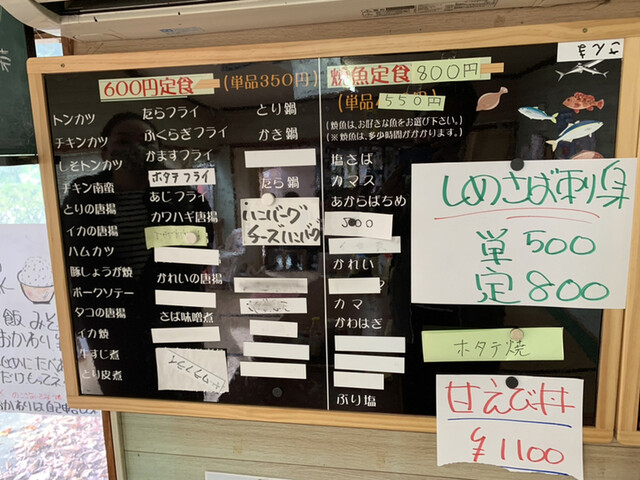 600円定食 (単品350円)
トンカツ
チキンカツ
しそトンカツ
チキン南蛮
とりの唐揚
イカの唐揚
ハムカツ
豚しょうが焼
ポークソテー
タコの唐揚
イカ焼
牛すじ煮
とり皮煮
たらフライ
ふくらぎフライ
かますフライ
ホタテフライ
あじフライ
カワハギ唐揚
かれいの唐揚
さば味噌煮
とり鍋
かき鍋
たら鍋
ハンバーグ
チーズハンバーグ
焼魚定食 800円
(単品 550円)
(焼魚は、お好きな魚をお選び下さい。)
(※焼魚は、多少時間がかかります。)
塩さば
カマス
あからばちめ
かれい
カマ
かわはぎ
ぶり塩
さんま
しめさば刺身
単 500
定 800
ホタテ焼
甘えび丼
¥1100
飯 みそ
おかわり